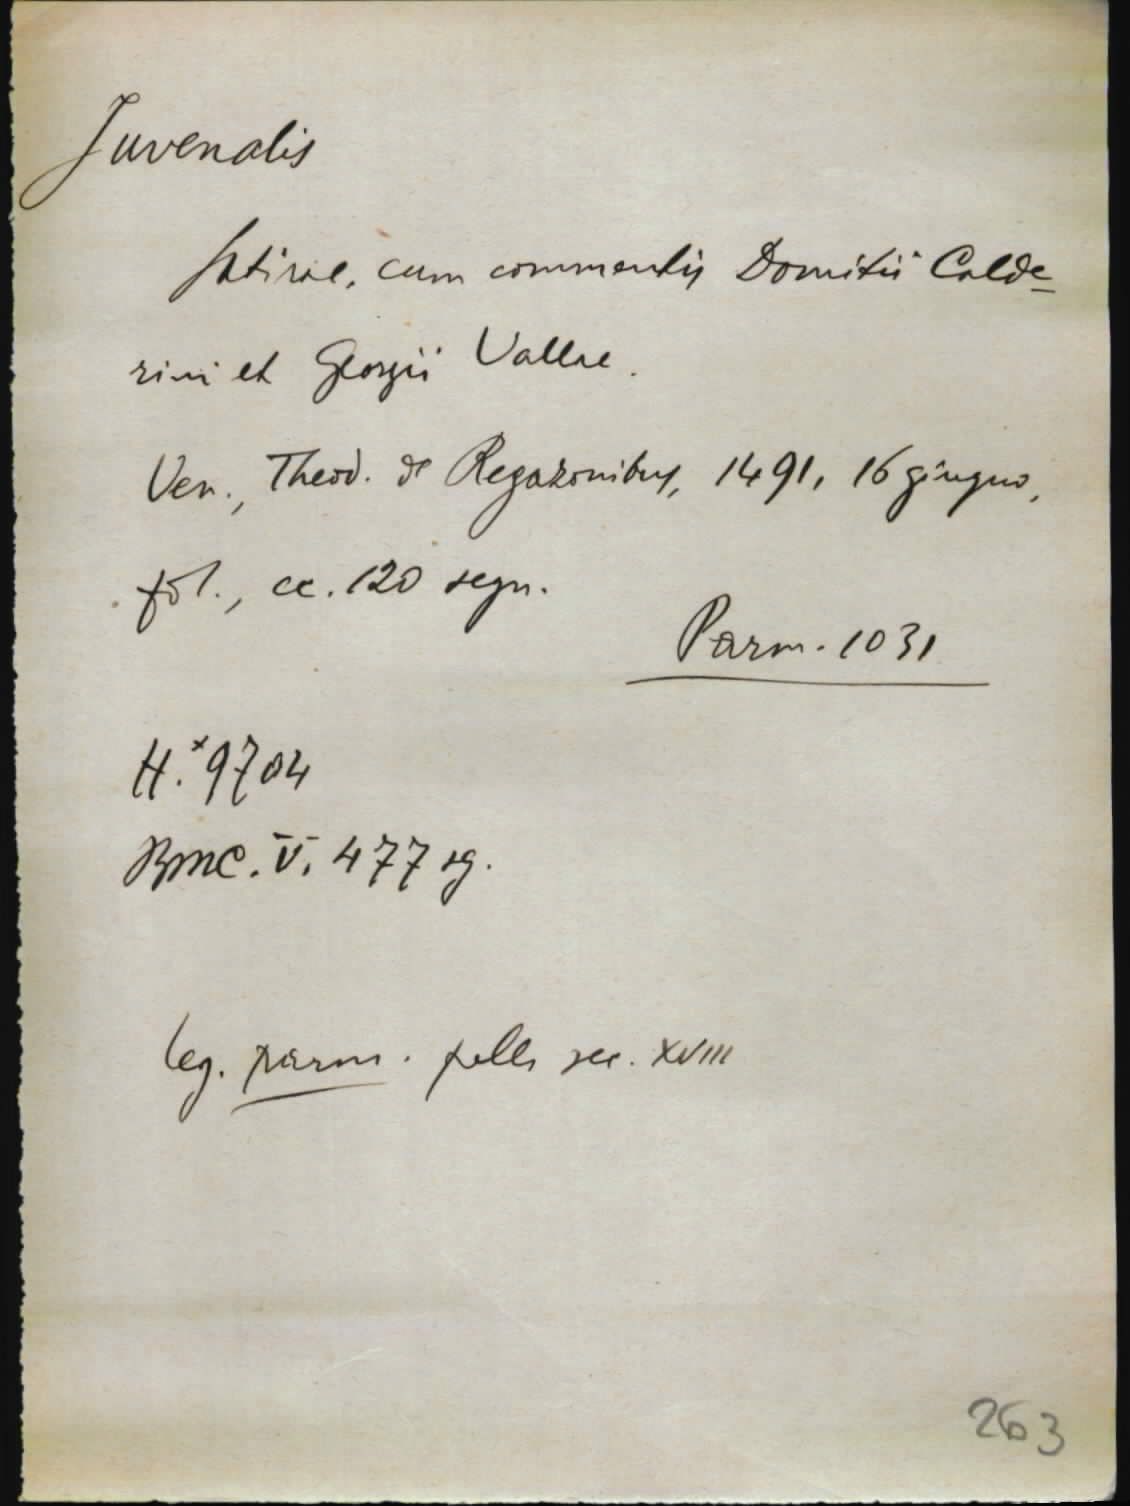 Juvenalis
Satirae, cum commentis Domitii Calde-
rini et Georgii Vallae.
Ven., Theod. de Regazonibus, 1491, 16 giugno,
fol., cc. 120 segn.
Parm. 1031
H.*9704
BMC. V. 477 sg.
leg. parm. pelle sec. XVIII
263